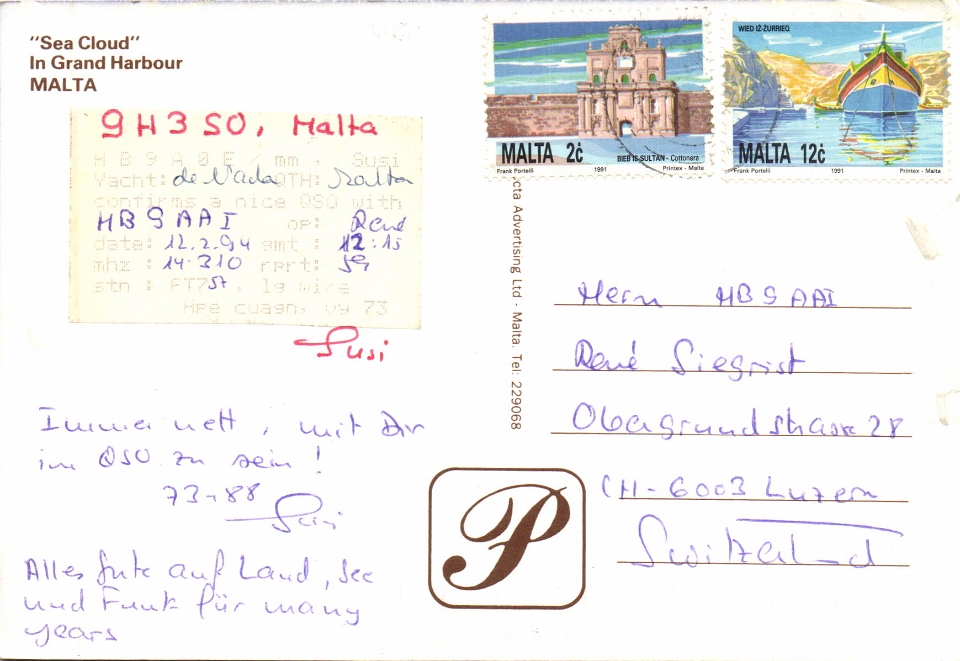 "Sea Cloud"
In Grand Harbour
MALTA
9H3SO, Malta
HB9AOE / mm , Susi
Yacht: QTH: Malta
confirms a nice QSO with
HB9AAI op: René
date: 12.2.94 gmt : 12:15
mhz : 14.310 rprt: 59
stn : FT757, lg wire
Hpe cuagn, vy 73
Susi
Immer nett, mit Dir
im QSO zu sein!
73+88
Susi
Alles Gute auf Land, See
und Funk für many
years
MALTA 2c
BIEB IS-SULTAN - Cottonera
Frank Portelli 1991 Printex - Malta
WIED IŻ-ŻURRIEQ
MALTA 12c
Frank Portelli 1991 Printex - Malta
cta Advertising Ltd · Malta. Tel: 229068
P
Herrn HB9AAI
René Siegrist
Obergrundstrasse 28
CH-6003 Luzern
Switzerland